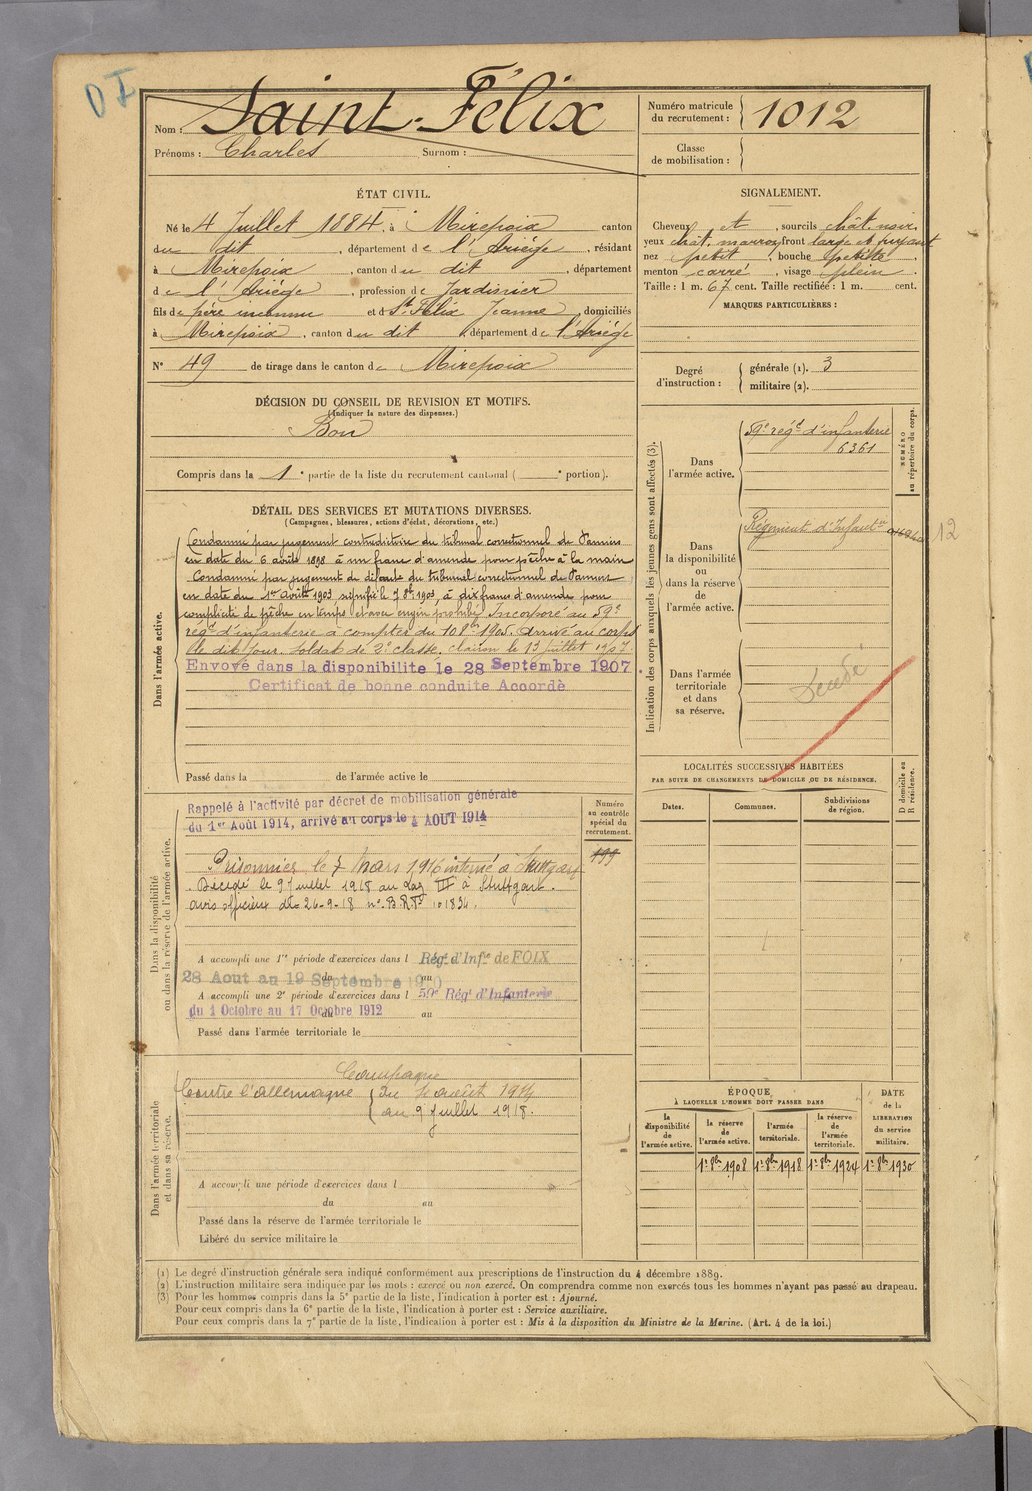 DI
Nom : Saint-Félix
Prénoms : Charles Surnom :
Numéro matricule du recrutement : 1012
Classe de mobilisation :
ÉTAT CIVIL.
Né le 4 Juillet 1884, à Mirepoix canton
du dit, département de l'Ariége, résidant
à Mirepoix, canton du dit, département
de l'Ariége, profession de Jardinier
fils de père inconnu et de St Félix Jeanne, domiciliés
à Mirepoix, canton du dit, département de l'Ariége
N° 49 de tirage dans le canton de Mirepoix
SIGNALEMENT.
Cheveux et sourcils chât. noir,
yeux chât. marron, front large et fuyant
nez petit, bouche petite,
menton carré, visage plein.
Taille : 1 m. 67 cent. Taille rectifiée : 1 m. cent.
MARQUES PARTICULIÈRES :
Degré d'instruction :
générale (1). 3
militaire (2).
DÉCISION DU CONSEIL DE REVISION ET MOTIFS.
(Indiquer la nature des dispenses.)
Bon
Compris dans la 1e partie de la liste du recrutement cantonal ( e portion).
DÉTAIL DES SERVICES ET MUTATIONS DIVERSES.
(Campagnes, blessures, actions d'éclat, décorations, etc.)
Dans l'armée active.
Condamné par jugement contradictoire du tribunal correctionnel de Pamiers
en date du 6 août 1898 à un franc d'amende pour pêche à la main
Condamné par jugement de défaut du tribunal correctionnel de Pamiers
en date du 1er août 1903 signifié le 7 8bre 1903, à dix francs d'amende pour
complicité de pêche en temps et avec engin prohibé. Incorporé au 59e
régt d'infanterie à compter du 10 8bre 1905. Arrivé au corps
le dit jour. Soldat de 2e classe. clairon le 13 juillet 1907.
Envoyé dans la disponibilité le 28 Septembre 1907.
Certificat de bonne conduite Accordé
Passé dans la de l'armée active le
Indication des corps auxquels les jeunes gens sont affectés (3).
Dans l'armée active.
59e régt d'infanterie
6361
NUMÉRO au répertoire du corps.
Dans la disponibilité ou dans la réserve de l'armée active.
Régiment d'Infantie
12
Dans l'armée territoriale et dans sa réserve.
Décédé
LOCALITÉS SUCCESSIVES HABITÉES
PAR SUITE DE CHANGEMENTS DE DOMICILE OU DE RÉSIDENCE.
D domicile ou R résidence.
Dates. Communes. Subdivisions de région.
Dans la disponibilité ou dans la réserve de l'armée active.
Numéro au contrôle spécial du recrutement.
199
Rappelé à l'activité par décret de mobilisation générale
du 1er Août 1914, arrivé au corps le 4 AOUT 1914
Prisonnier le 7 Mars 1916 interné à Stuttgart
Décédé le 9 juillet 1918 au Laz III à Stuttgart.
avis officieux du 26-9-18 no. B.R.T° 101834.
A accompli une 1re période d'exercices dans l Régt d'Infie de FOIX
28 Aout au 19 Septembre 1910
du au
A accompli une 2e période d'exercices dans l 59e Régt d'Infanterie
du 1 Octobre au 17 Octobre 1912
du au
Passé dans l'armée territoriale le
Dans l'armée territoriale et dans sa réserve.
Campagne
Contre l'allemagne { du 4 août 1914
au 9 juillet 1918.
A accompli une période d'exercices dans l
du au
Passé dans la réserve de l'armée territoriale le
Libéré du service militaire le
ÉPOQUE
À LAQUELLE L'HOMME DOIT PASSER DANS
DATE de la LIBÉRATION du service militaire.
la disponibilité de l'armée active.
la réserve de l'armée active.
l'armée territoriale.
la réserve de l'armée territoriale.
1er 8bre 1908 1er 8bre 1918 1er 8bre 1924 1er 8bre 1930
(1) Le degré d'instruction générale sera indiqué conformément aux prescriptions de l'instruction du 4 décembre 1889.
(2) L'instruction militaire sera indiquée par les mots : exercé ou non exercé. On comprendra comme non exercés tous les hommes n'ayant pas passé au drapeau.
(3) Pour les hommes compris dans la 5e partie de la liste, l'indication à porter est : Ajourné.
Pour ceux compris dans la 6e partie de la liste, l'indication à porter est : Service auxiliaire.
Pour ceux compris dans la 7e partie de la liste, l'indication à porter est : Mis à la disposition du Ministre de la Marine. (Art. 4 de la loi.)